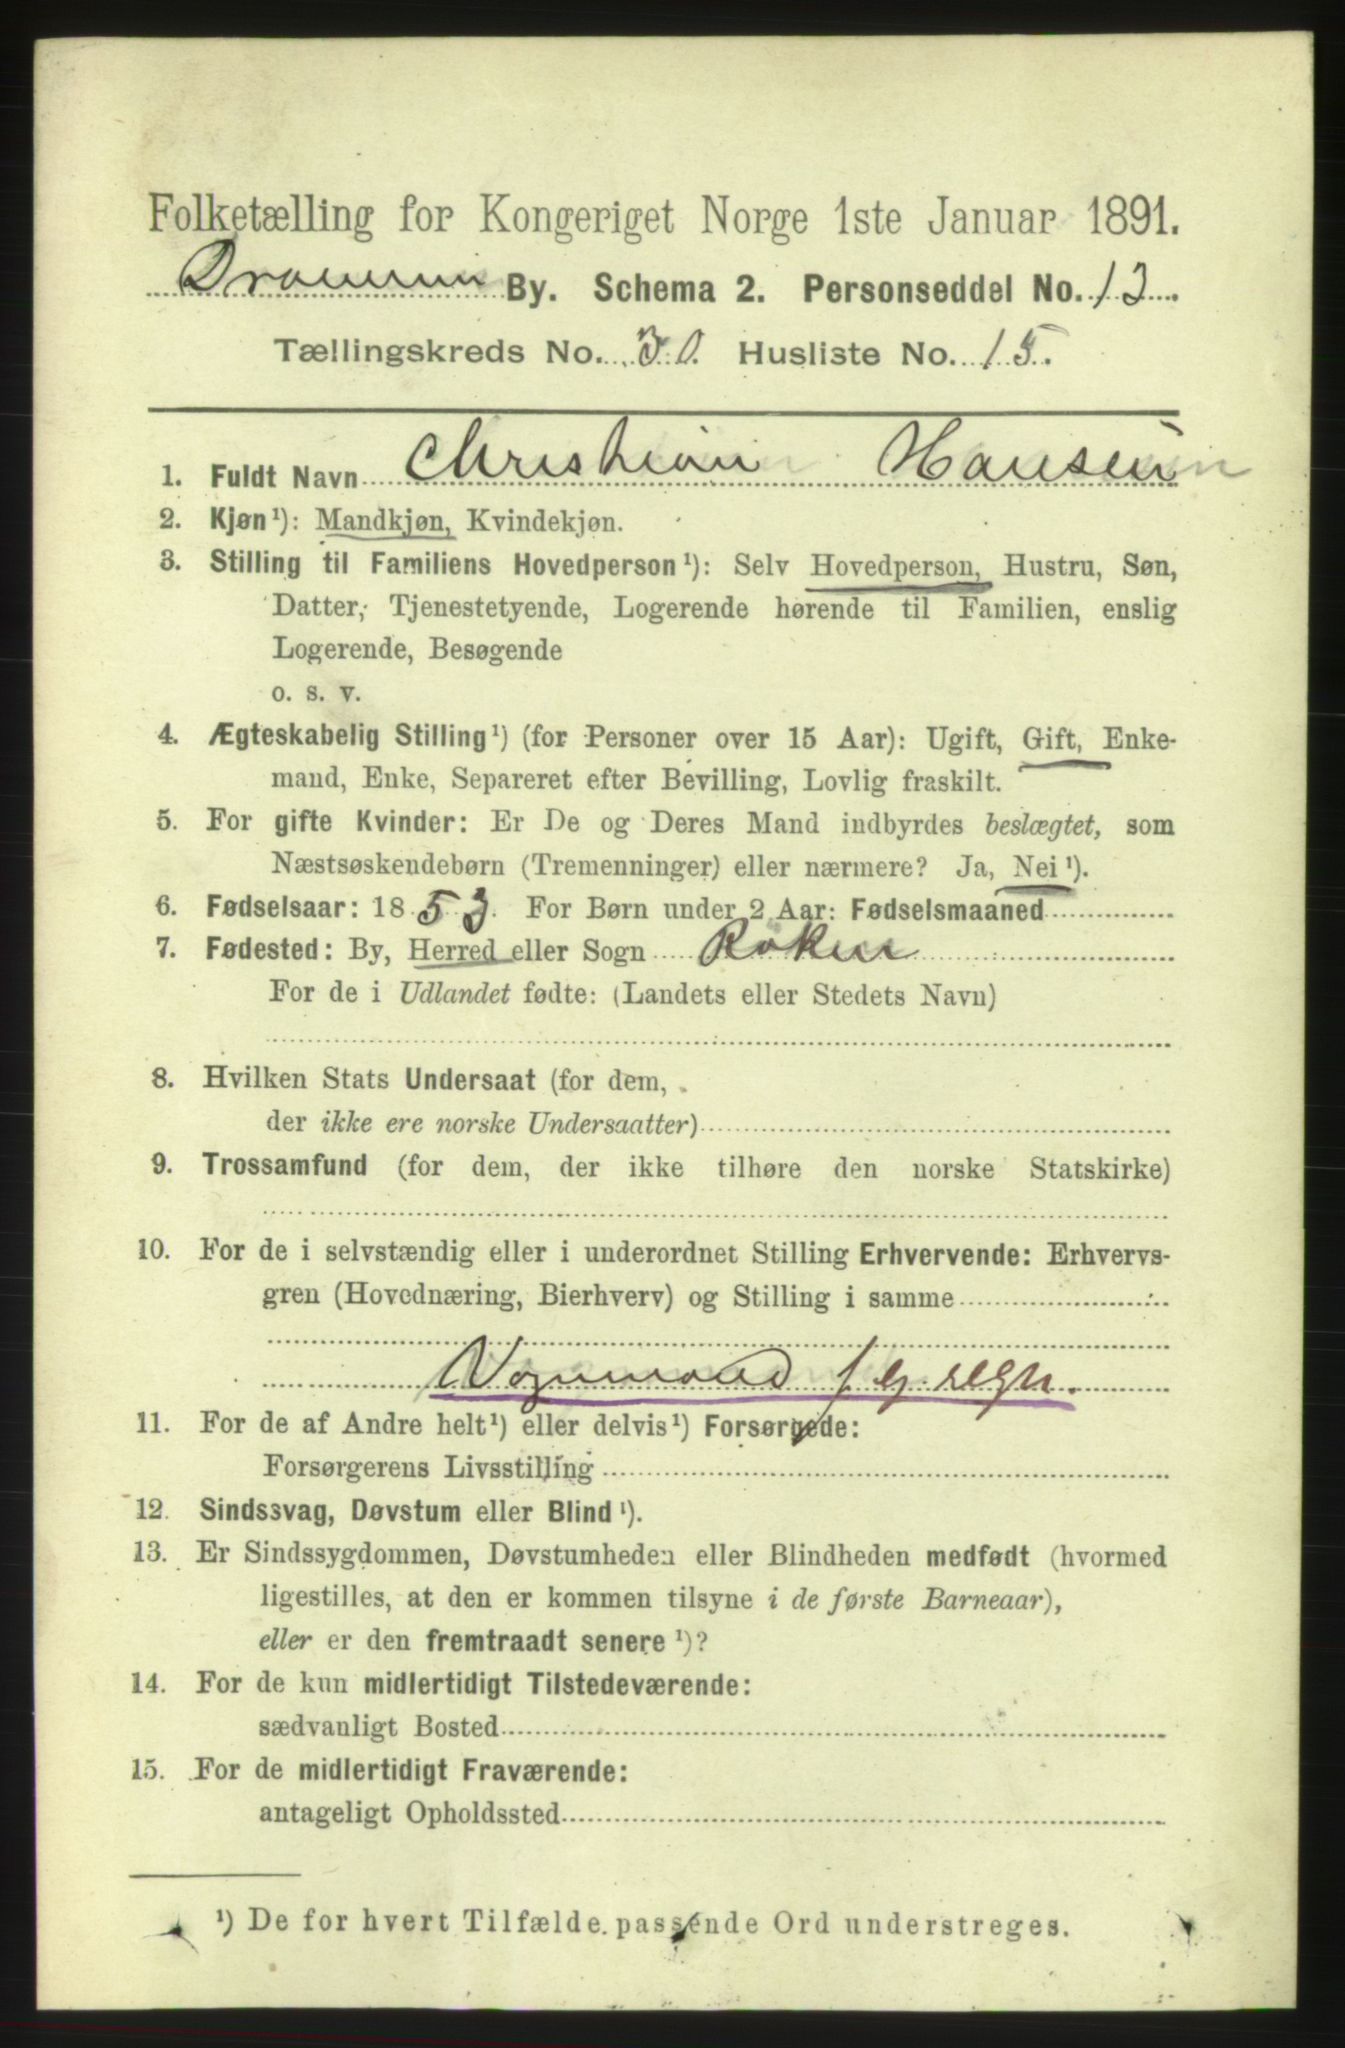 Folketælling for Kongeriget Norge 1ste Januar 1891.
Drammen By. Schema 2. Personseddel No. 13
Tællingskreds No. 30. Husliste No. 15.
1. Fuldt Navn Christian Hansen
2. Kjøn¹): Mandkjøn, Kvindekjøn.
3. Stilling til Familiens Hovedperson¹): Selv Hovedperson, Hustru, Søn,
Datter, Tjenestetyende, Logerende hørende til Familien, enslig
Logerende, Besøgende
o. s. v.
4. Ægteskabelig Stilling¹) (for Personer over 15 Aar): Ugift, Gift, Enke-
mand, Enke, Separeret efter Bevilling, Lovlig fraskilt.
5. For gifte Kvinder: Er De og Deres Mand indbyrdes beslægtet, som
Næstsøskendebørn (Tremenninger) eller nærmere? Ja, Nei¹).
6. Fødselsaar: 1853. For Børn under 2 Aar: Fødselsmaaned
7. Fødested: By, Herred eller Sogn Røken
For de i Udlandet fødte: (Landets eller Stedets Navn)
8. Hvilken Stats Undersaat (for dem,
der ikke ere norske Undersaatter)
9. Trossamfund (for dem, der ikke tilhøre den norske Statskirke)
10. For de i selvstændig eller i underordnet Stilling Erhvervende: Erhvervs-
gren (Hovednæring, Bierhverv) og Stilling i samme
Vognmand f. eg. regn.
11. For de af Andre helt¹) eller delvis¹) Forsørgede:
Forsørgerens Livsstilling
12. Sindssvag, Døvstum eller Blind¹).
13. Er Sindssygdommen, Døvstumheden eller Blindheden medfødt (hvormed
ligestilles, at den er kommen tilsyne i de første Barneaar),
eller er den fremtraadt senere¹)?
14. For de kun midlertidigt Tilstedeværende:
sædvanligt Bosted
15. For de midlertidigt Fraværende:
antageligt Opholdssted
¹) De for hvert Tilfælde passende Ord understreges.